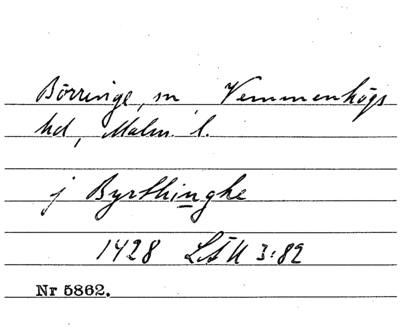 Börringe, sn, Vemmenhögs
hd, Malm. l.
j Byrthinghe
1428 LÄU 3:82
Nr 5862.